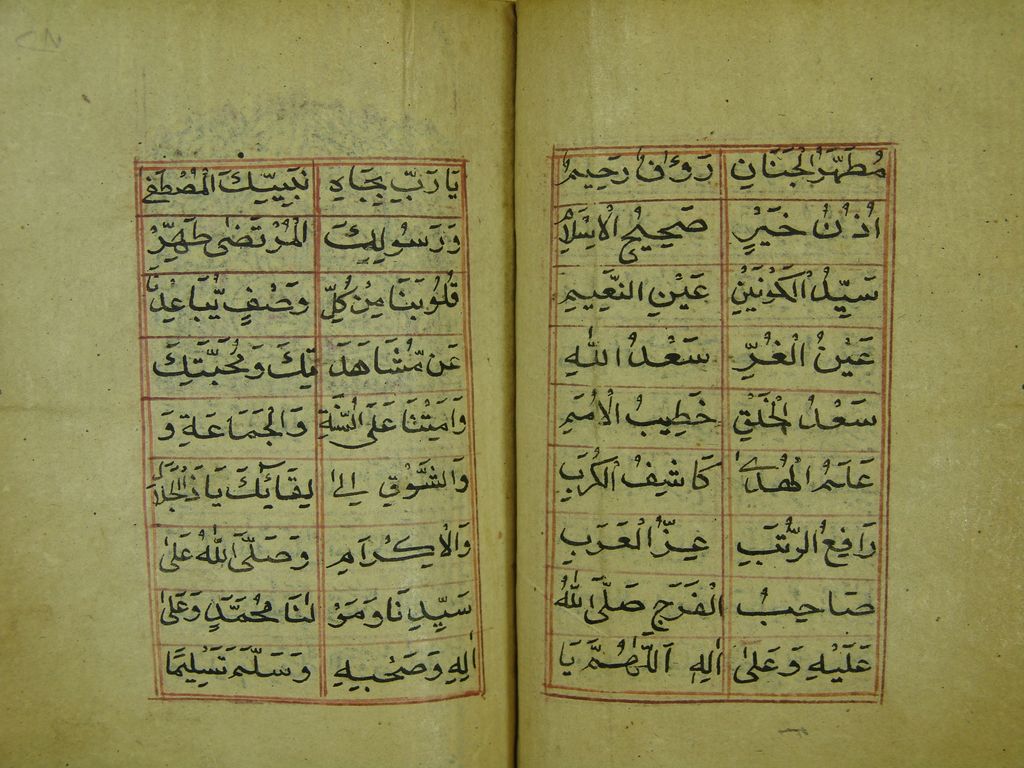 مُطَهَّرُ الْجَنَانِ رَؤُفٌ رَحِيمٌ
اُذُنُ خَيْرٍ صَحِيحُ الْاِسْلَامِ
سَيِّدُ الْكَوْنَيْنِ عَيْنِ النَّعِيمِ
عَيْنُ الْغُرِّ سَعْدُ اللهِ
سَعْدُ الْخَلْقِ خَطِيبُ الْاُمَمِ
عَلَمُ الْهُدٰى كَاشِفُ الْكُرَبِ
رَافِعُ الرُّتَبِ عِزُّ الْعَرَبِ
صَاحِبُ الْفَرَجِ صَلَّى اللهُ
عَلَيْهِ وَعَلٰى اٰلِهِ اَللّٰهُمَّ يَا
يَا رَبِّ بِجَاهِ نَبِيِّكَ الْمُصْطَفٰى
وَرَسُولِكَ الْمُرْتَضٰى طَهِّرْ
قُلُوبَنَا مِنْ كُلِّ وَصْفٍ يُبَاعِدُنَا
عَنْ مُّشَاهَدَ تِكَ وَمُحَبَّتِكَ
وَاَمِتْنَا عَلَى السُّنَّةِ وَالْجَمَاعَةِ وَ
وَالشَّوْقِ اِلٰى لِقَآئِكَ يَا ذَا الْجَلَالِ
وَالْاِكْرَامِ وَصَلَّى اللهُ عَلٰى
سَيِّدِنَا وَمَوْ لٰنَا مُحَمَّدٍ وَعَلٰى
اٰلِهِ وَصَحْبِهِ وَسَلَّمَ تَسْلِيمًا